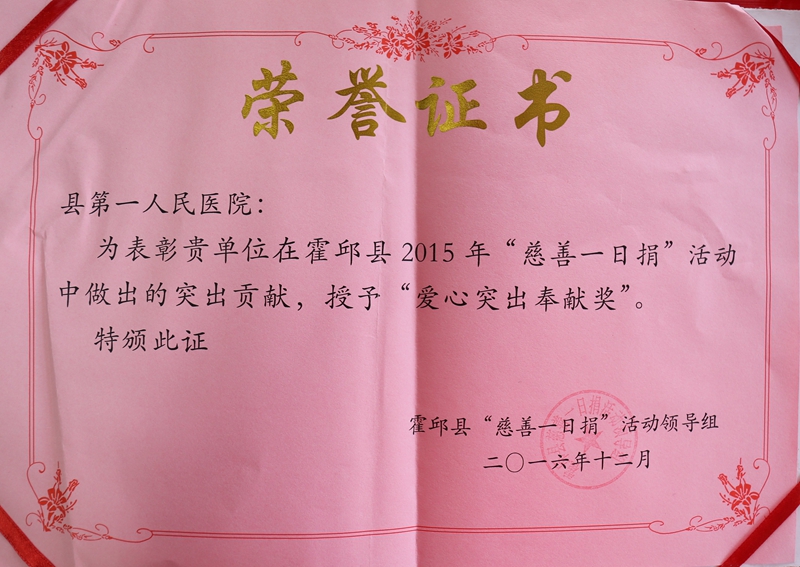 荣誉证书
县第一人民医院：
为表彰贵单位在霍邱县2015年“慈善一日捐”活动
中做出的突出贡献，授予“爱心突出奉献奖”。
特颁此证
霍邱县“慈善一日捐”活动领导组
二〇一六年十二月